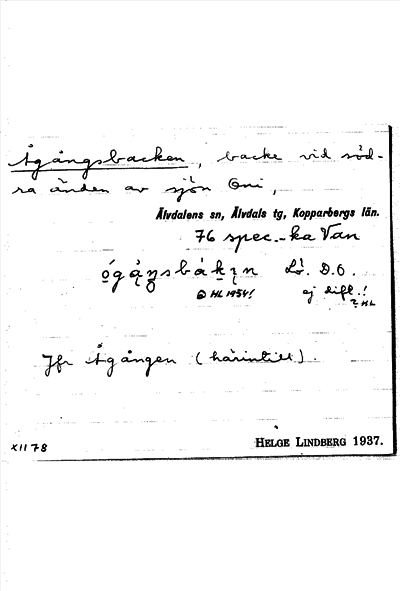 Ågångsbacken, backe vid söd-
ra änden av sjön Oni,
Älvdalens sn, Älvdals tg, Kopparbergs län.
76 spec.-ka Van
ógą́ŋsbák̠įn Lò. D.O.
HL 1954! ej dift.!
? HL
Jfr Ågången (härintill).
XII 78 HELGE LINDBERG 1937.